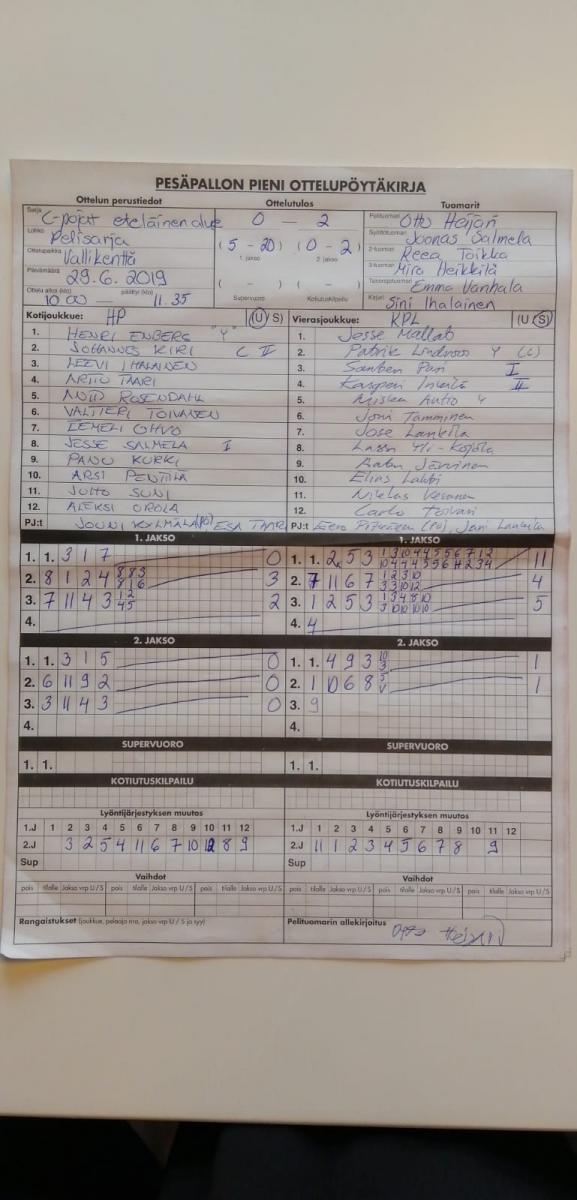 PESÄPALLON PIENI OTTELUPÖYTÄKIRJA
Ottelun perustiedot Ottelutulos Tuomarit
Sarja C-pojat eteläinen 0 — 2 Pelituomari Otto
Lohko Pelisarja (5 - 20) (0 - 2) Syöttötuomari Joonas Salmela
1. jakso 2. jakso
Ottelupaikka Vallikenttä 2-tuomari Reea Toikka
Päivämäärä 29.6.2019 ( - ) ( - ) 3-tuomari Miro Heikkilä
Supervuoro Kotiutuskilpailu
Takarajatuomari Emma Vanhala
Ottelu alkoi (klo) 10.00 — päättyi (klo) 11.35 Kirjuri Sini Ihalainen
Kotijoukkue: HP (U/S) Vierasjoukkue: KPL (U/S)
1. HENRI ENBERG "Y" 1. Jesse
2. JOHANNES KIRI C II 2. Patrik Lindroos Y (C)
3. LEEVI IHALAINEN 3. Santeri I
4. ARTTU TAARI 4. Kasperi II
5. ROSENDAHL 5. Autio Y
6. VALTTERI TOIVANEN 6. Joni Tamminen
7. EEMELI OHVO 7. Jose Lankila
8. JESSE SALMELA I 8. Lassi Yli-Kojola
9. PANU KURKI 9. Järvinen
10. ARSI PENTTILÄ 10. Elias Lahti
11. JUHO SUNI 11. Niklas
12. ALEKSI OROLA 12. Carlo Toivari
PJ:t JOUNI KYLMÄLÄ (PJ) ESA TAARI PJ:t Eero (PJ), Jani Lankila
1. JAKSO 1. JAKSO
1. 1. 3 1 7 0 1. 1. 2 5 3 11
2. 8 1 2 4 3 2. 7 11 6 7 4
3. 7 11 4 3 2 3. 1 2 5 3 5
4. 4. 4
2. JAKSO 2. JAKSO
1. 1. 3 1 5 0 1. 1. 4 9 3 1
2. 6 11 9 2 0 2. 1 10 6 8 1
3. 3 11 4 3 0 3. 9
4. 4.
SUPERVUORO SUPERVUORO
1. 1. 1. 1.
KOTIUTUSKILPAILU KOTIUTUSKILPAILU
Lyöntijärjestyksen muutos Lyöntijärjestyksen muutos
1.J 1 2 3 4 5 6 7 8 9 10 11 12 1.J 1 2 3 4 5 6 7 8 9 10 11 12
2.J 3 2 5 4 11 6 7 10 12 8 9 2.J 11 1 2 3 4 5 6 7 8 9
Sup Sup
Vaihdot Vaihdot
pois tilalle Jakso vrp U / S pois tilalle Jakso vrp U / S pois tilalle Jakso vrp U / S pois tilalle Jakso vrp U / S
Rangaistukset (joukkue, pelaaja nro, jakso-vrp U / S ja syy) Pelituomarin allekirjoitus Otto